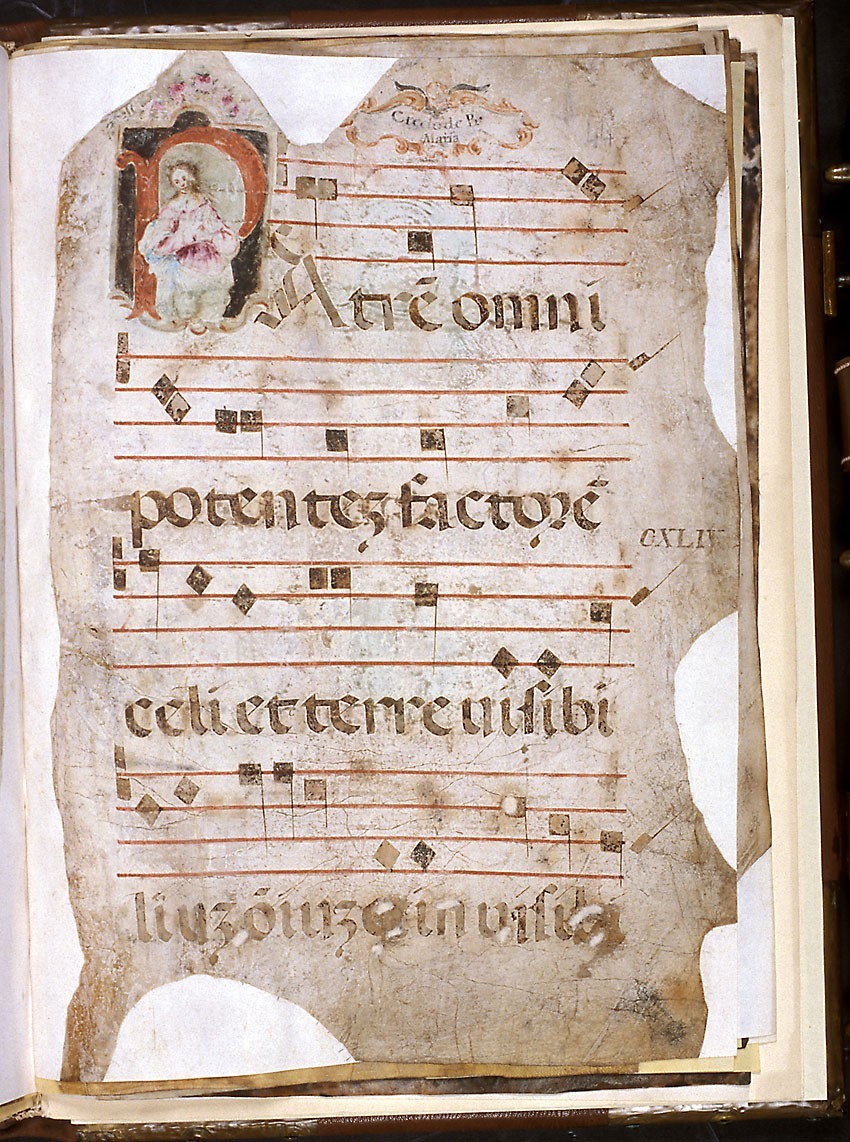 Credo de la
Maria
44
PAtrē omni
potentez factorē
CXLIV
celi et terre uisibi
liuz oīuz